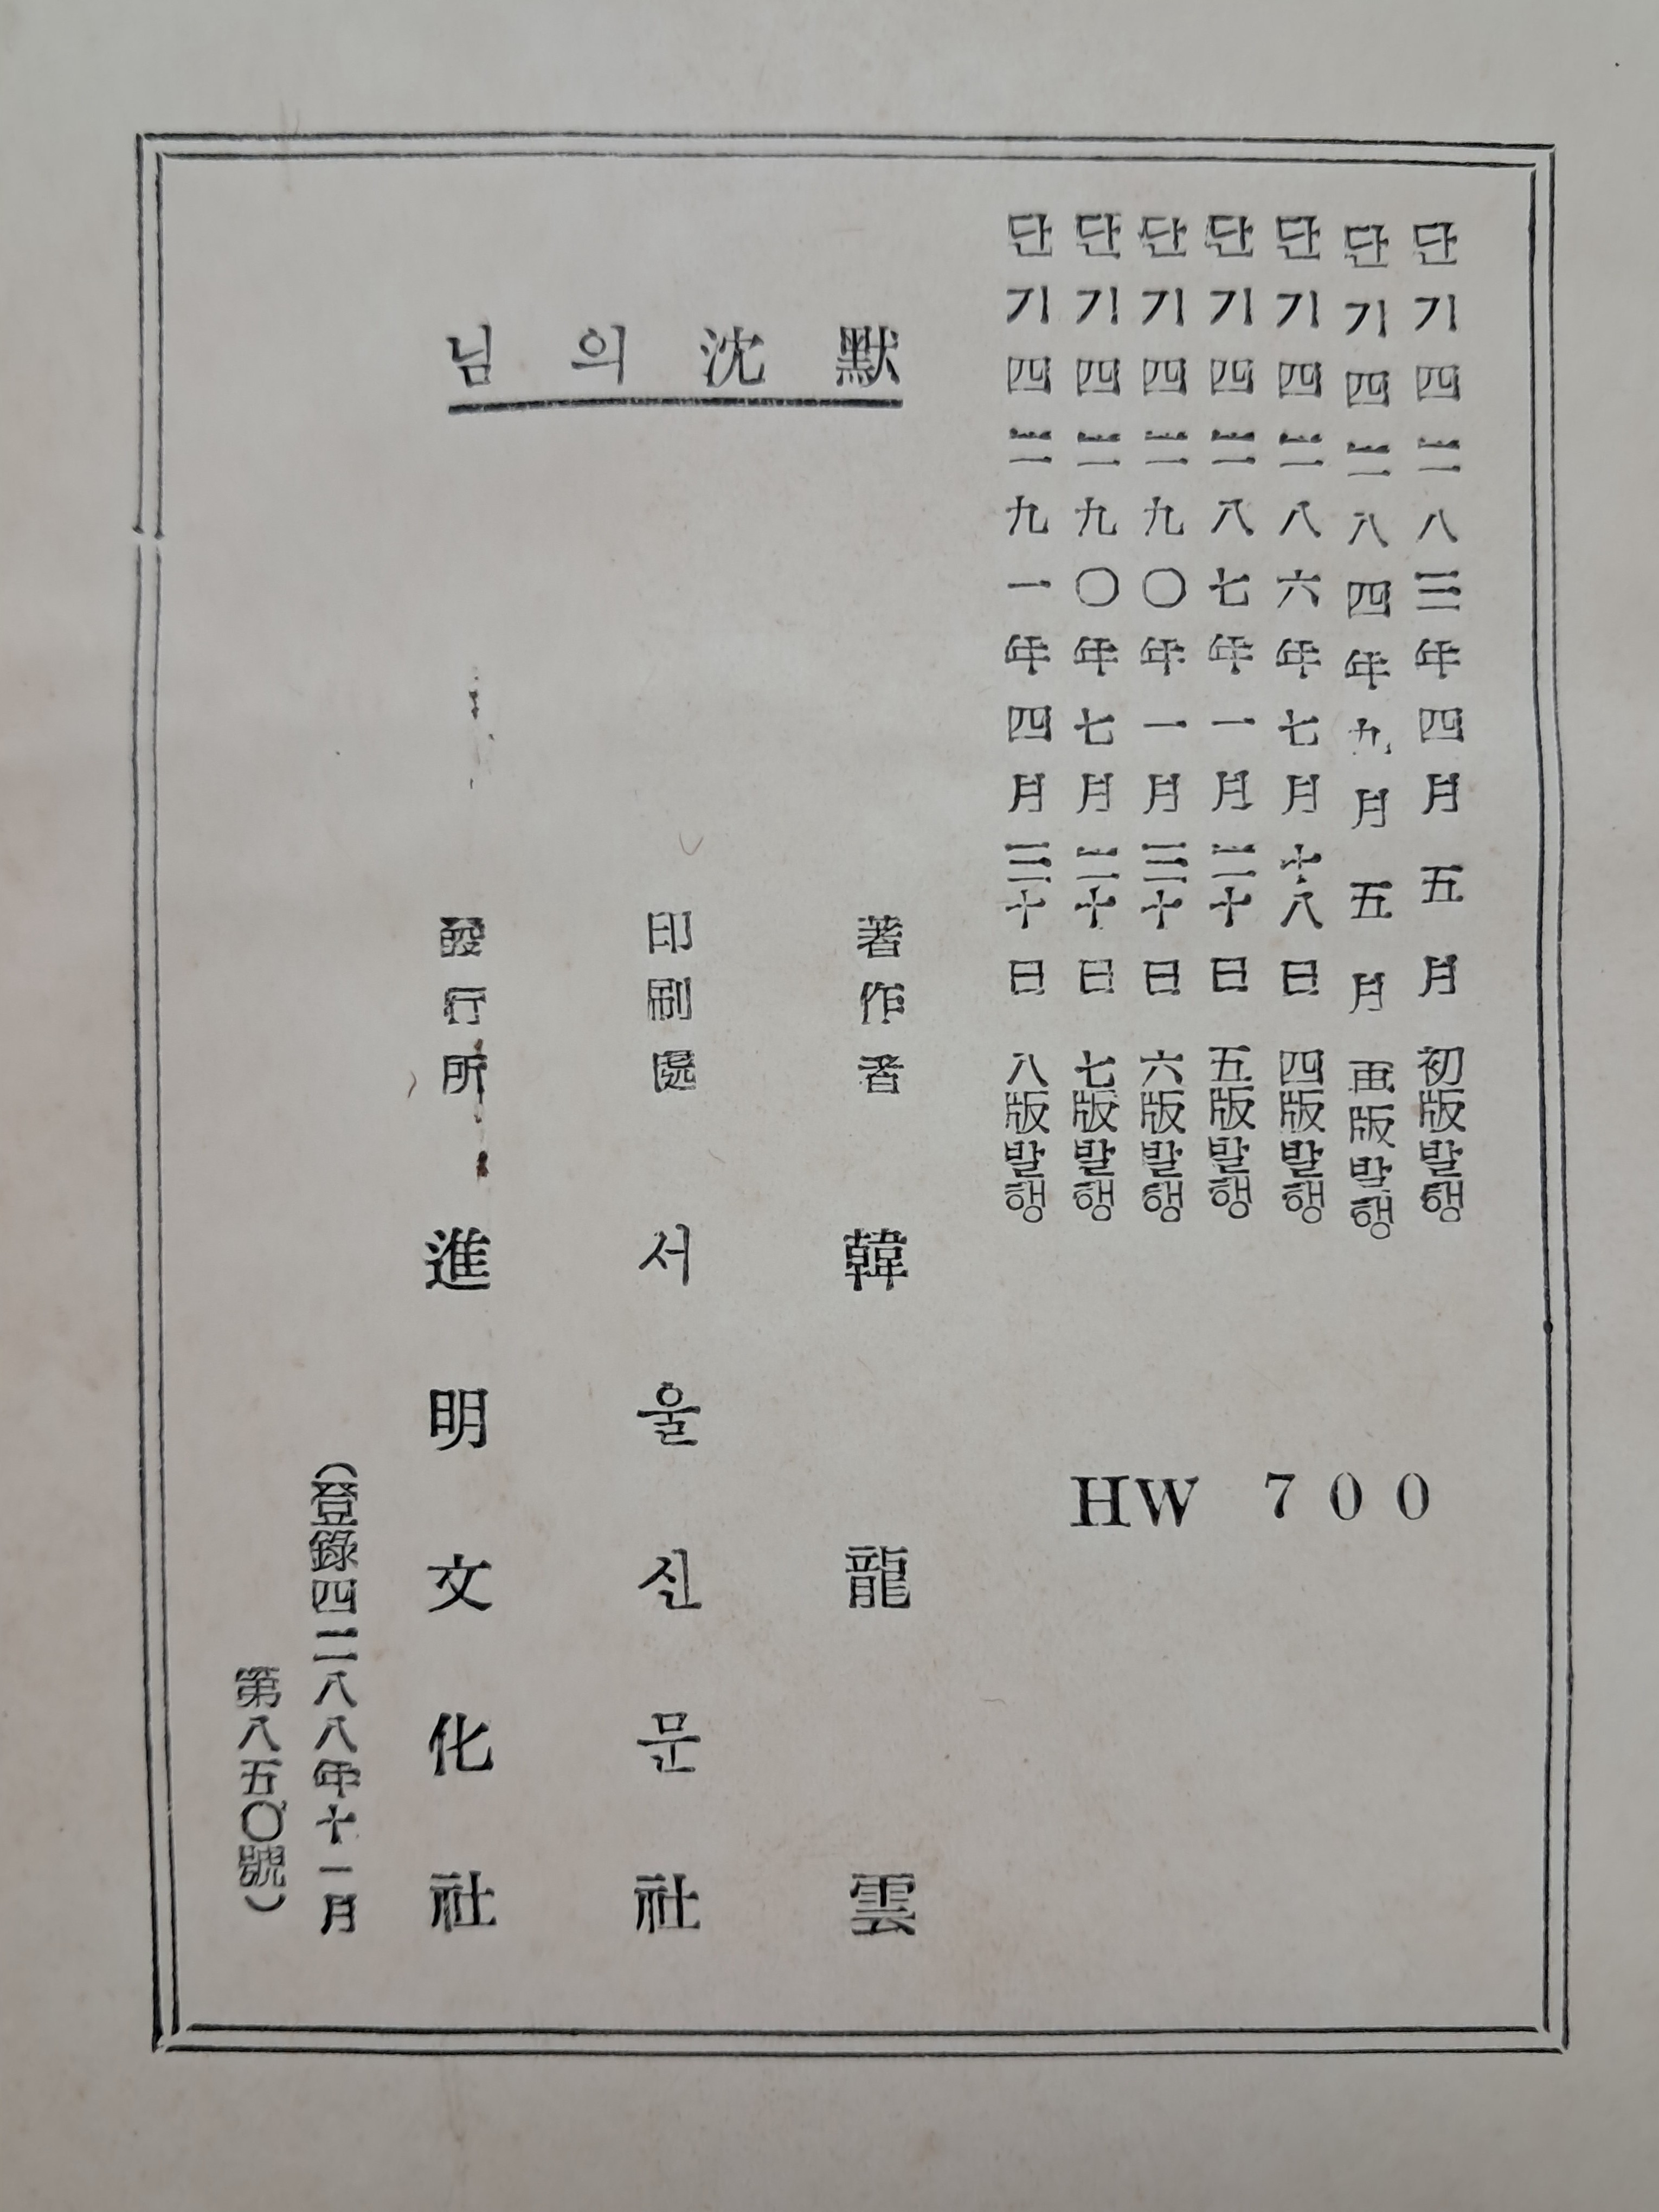 단기四二八三年四月五月 初版발행
단기四二八四年九月五月 再版발행
단기四二八六年七月十八日 四版발행
단기四二八七年一月二十日 五版발행
단기四二九〇年一月三十日 六版발행
단기四二九〇年七月二十日 七版발행
단기四二九一年四月三十日 八版발행
HW 700
님의沈默
著作者 韓龍雲
印刷處 서울신문社
發行所 進明文化社
(登錄四二八八年十一月
第八五〇號)